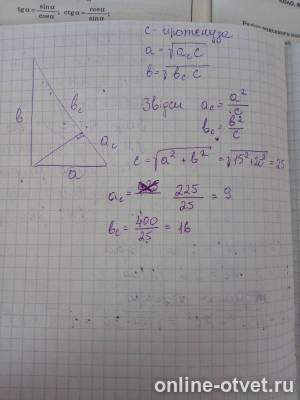 tgα = sinα/cosα; ctgα = cosα/sinα;
c - гіпотенуза
a = √(a_c c)
b = √(b_c c)
Звідси a_c = a²/c
b_c = b²/c
c = √(a² + b²) = √(15² + 20²) = 25
a_c = 225/25 = 9
b_c = 400/25 = 16
b
b_c
a_c
a
online-otvet.ru